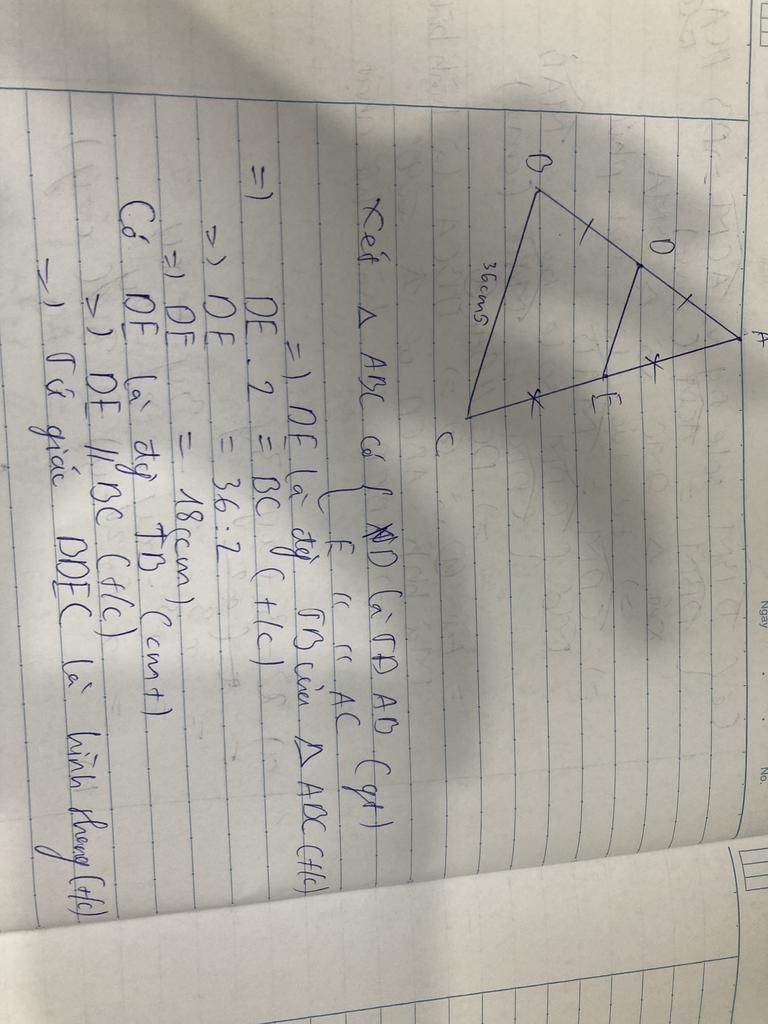 Ngày
No.
A
D
B
E
C
36cm
Xét Δ ABC có { D là TĐ AB (gt)
E " " AC
=) DE là đg TB của Δ ABC (t/c)
=) DE . 2 = BC (t/c)
=) DE = 36 : 2
=) DE = 18(cm)
Có DE là đg TB (cmt)
=) DE // BC (t/c)
=) Tứ giác BDEC là hình thang (t/c)